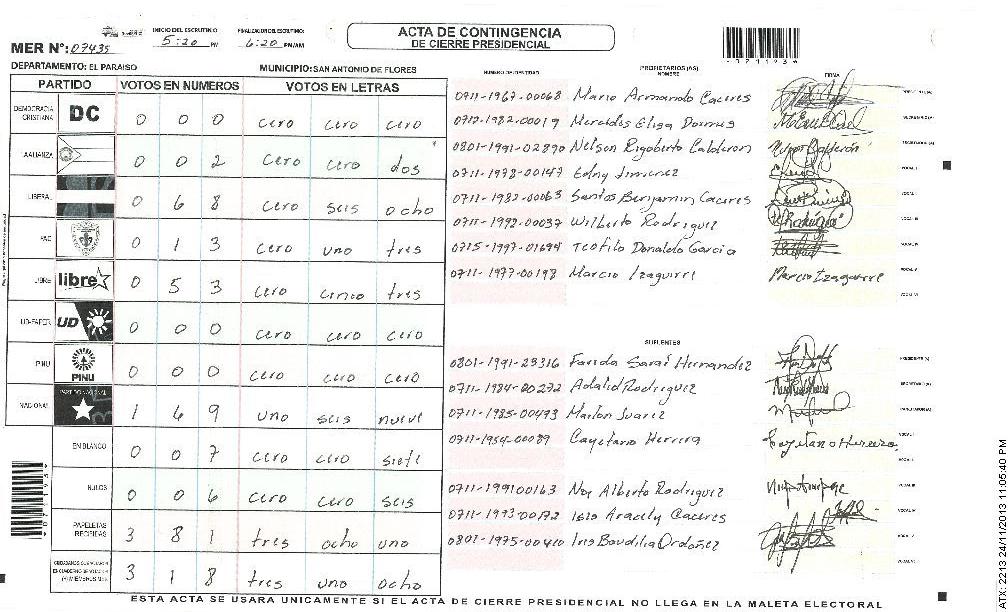 MER N°: 07435
INICIO DEL ESCRUTINIO: 5:20 PM
FINALIZACION DEL ESCRUTINIO: 6:20 PM/AM
ACTA DE CONTINGENCIA
DE CIERRE PRESIDENCIAL
DEPARTAMENTO: EL PARAISO
MUNICIPIO: SAN ANTONIO DE FLORES
PARTIDO VOTOS EN NUMEROS VOTOS EN LETRAS
DEMOCRACIA CRISTIANA DC 0 0 0 cero cero cero
AALIANZA 0 0 2 cero cero dos
LIBERAL 0 6 8 cero seis ocho
PAC 0 1 3 cero uno tres
LIBRE libre 0 5 3 cero cinco tres
UD-FAPER UD 0 0 0 cero cero cero
PINU PINU 0 0 0 cero cero cero
NACIONAL PARTIDO NACIONAL 1 6 9 uno seis nueve
EN BLANCO 0 0 7 cero cero siete
NULOS 0 0 6 cero cero seis
PAPELETAS RECIBIDAS 3 8 1 tres ocho uno
3 1 8 tres uno ocho
NUMERO DE IDENTIDAD PROPIETARIOS (AS) NOMBRE FIRMA
0711-1967-00068 Mario Armando Caceres
0712-1982-00019
0801-1991-02890 Nelson Rigoberto Calderon
0711-1978-00147 Edny Jimenez
0711-1982-00063 Santos Benjamin Caceres
0711-1992-00037 Wilberto Rodriguez
0715-1997-01694 Teofilo Donaldo Garcia
0711-1977-00198 Marcio Izaguirre Marcio Izaguirre
SUPLENTES
0801-1991-23316 Farida Sarai Hernandez
0711-1984-00272 Adalid Rodriguez
0711-1985-00473 Marlon Suarez
0711-1954-00089 Cayetano Herrera Cayetano Herrera
0711-1991 00163 Noe Alberto Rodriguez
0711-1993-00172 Isis Aracely Caceres
0801-1975-00410 Iris Baudilia Ordoñez
ESTA ACTA SE USARA UNICAMENTE SI EL ACTA DE CIERRE PRESIDENCIAL NO LLEGA EN LA MALETA ELECTORAL
ATX: 2213 24/11/2013 11:05:40 PM